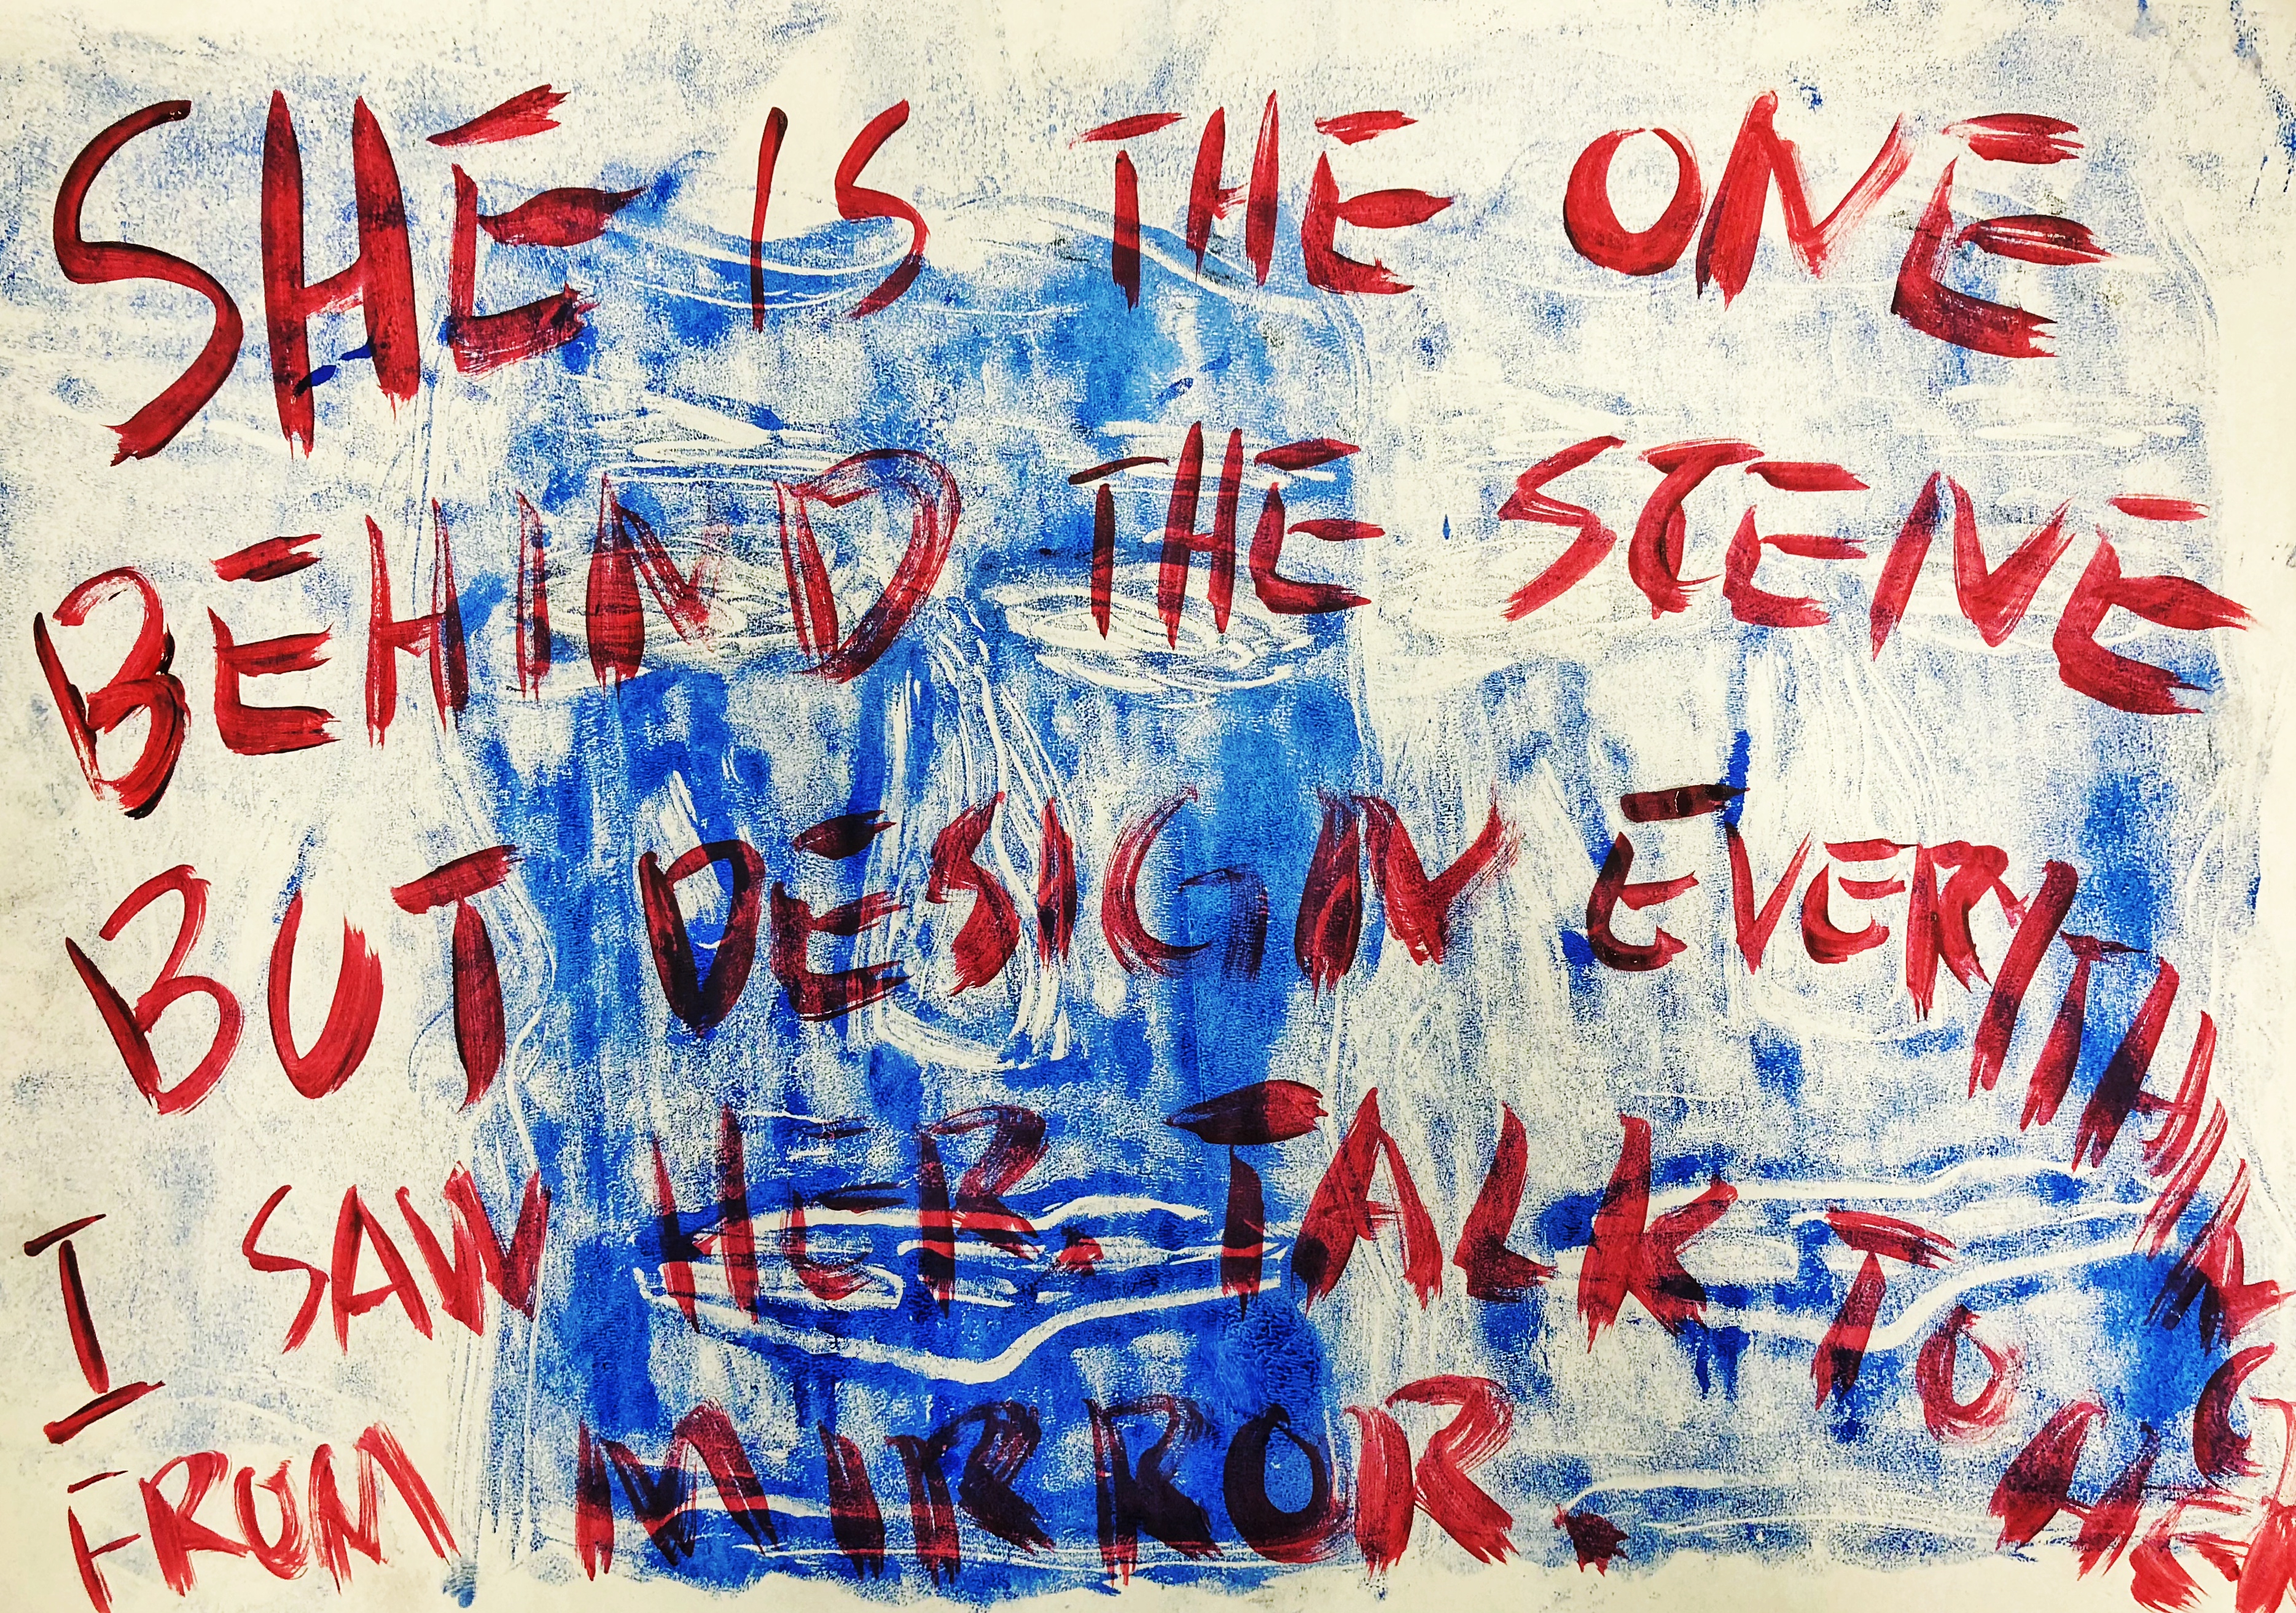 SHE IS THE ONE
BEHIND THE SCENE
BUT DESIGN EVERYTHING
I SAW HER. TALK TO HER
FROM MIRROR.